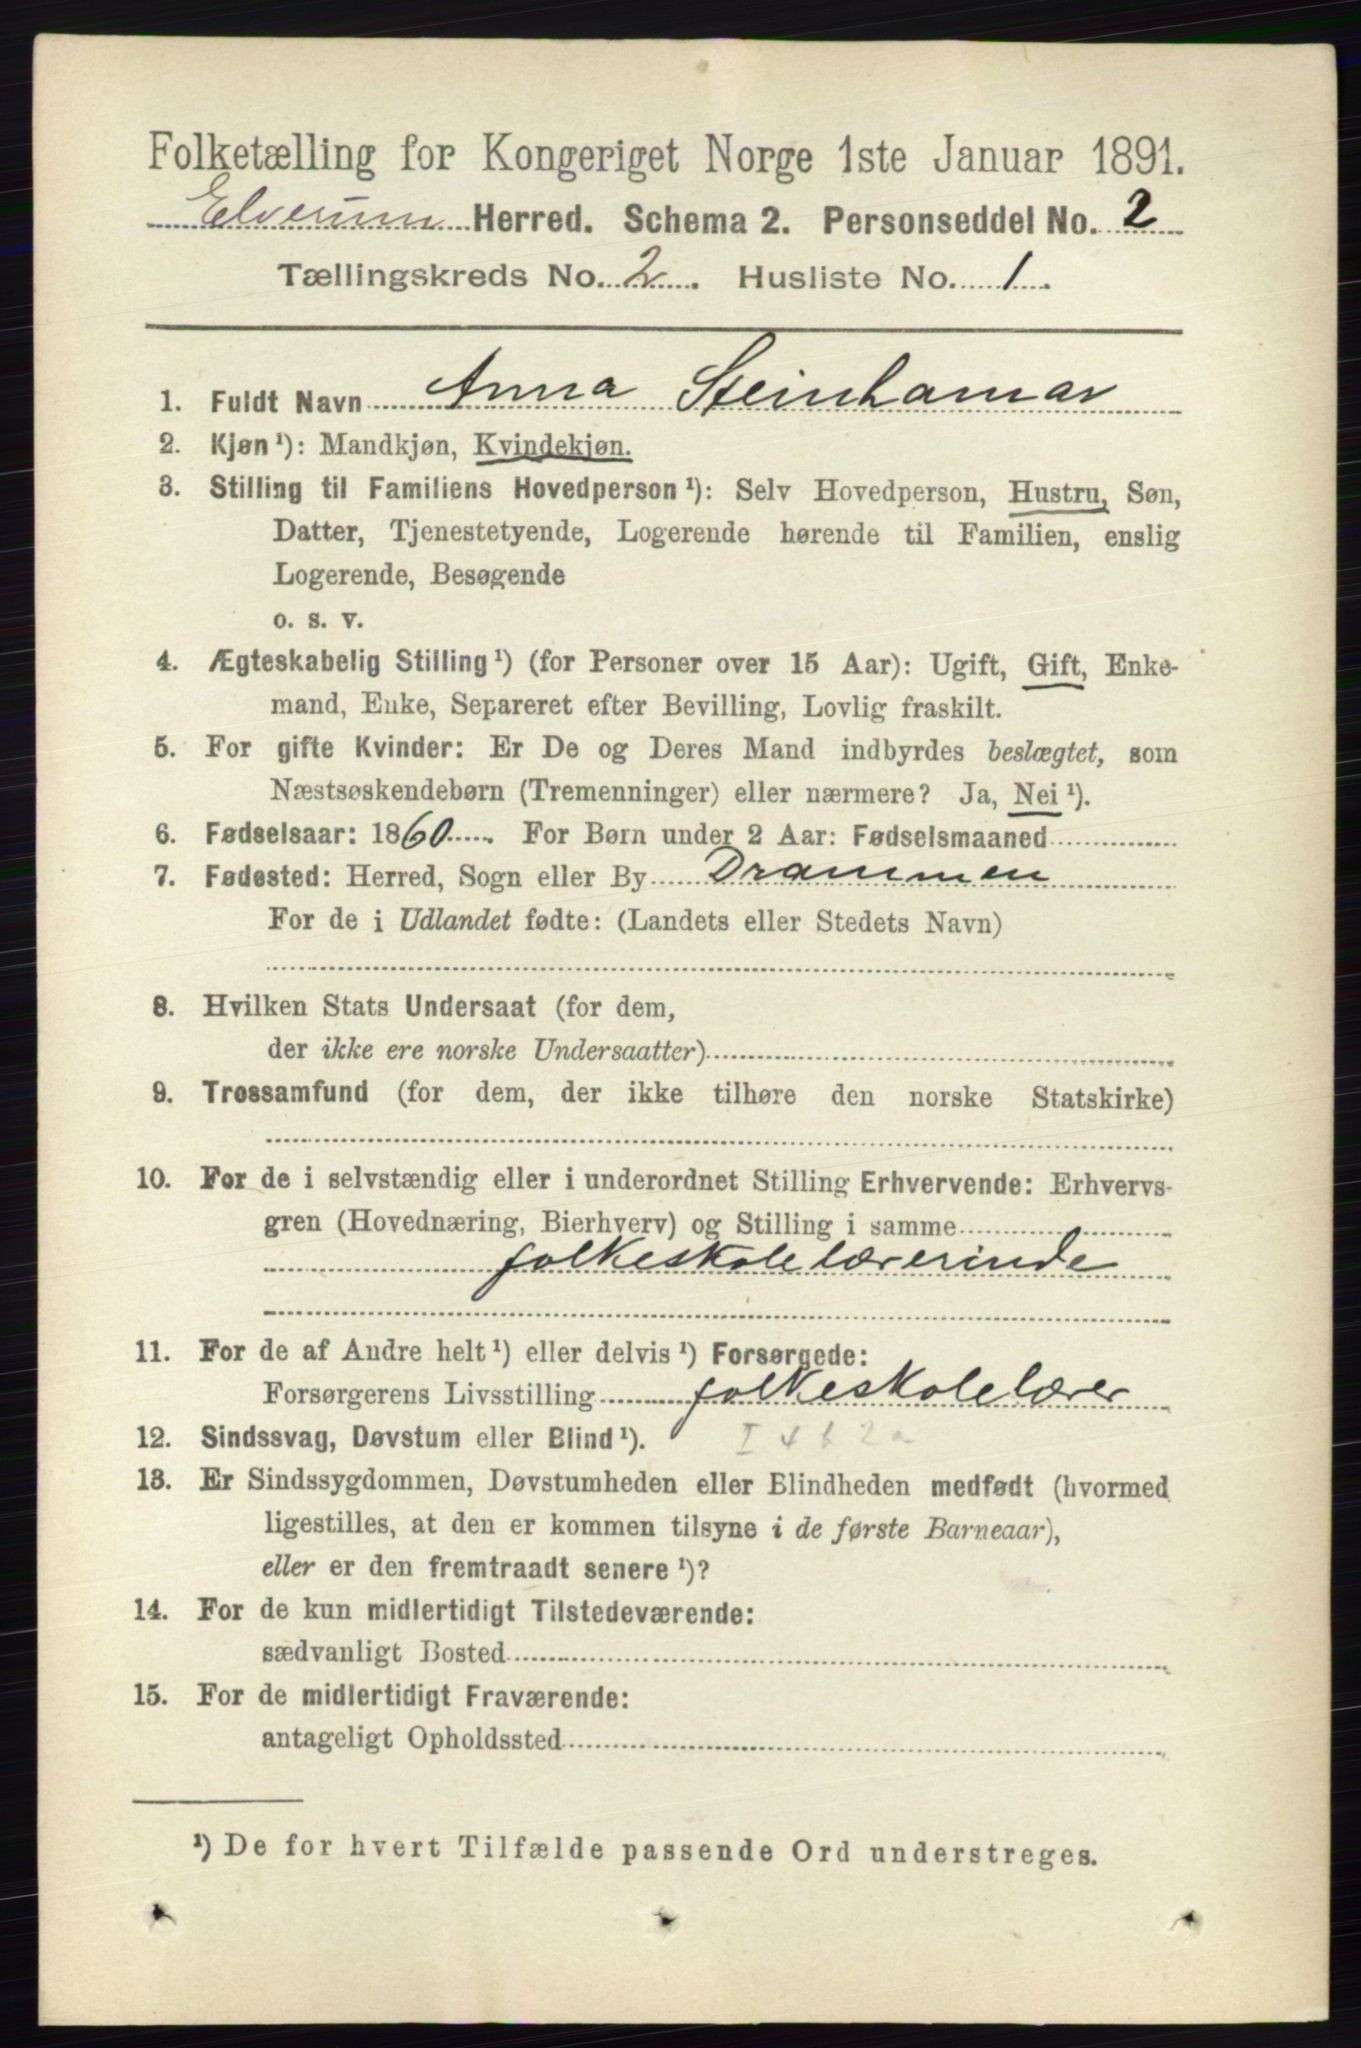 Folketælling for Kongeriget Norge 1ste Januar 1891.
Elverum Herred. Schema 2. Personseddel No. 2
Tællingskreds No. 2. Husliste No. 1.
1. Fuldt Navn Anna Steinhamar
2. Kjøn¹): Mandkjøn, Kvindekjøn.
3. Stilling til Familiens Hovedperson¹): Selv Hovedperson, Hustru, Søn,
Datter, Tjenestetyende, Logerende hørende til Familien, enslig
Logerende, Besøgende
o. s. v.
4. Ægteskabelig Stilling¹) (for Personer over 15 Aar): Ugift, Gift, Enke-
mand, Enke, Separeret efter Bevilling, Lovlig fraskilt.
5. For gifte Kvinder: Er De og Deres Mand indbyrdes beslægtet, som
Næstsøskendebørn (Tremenninger) eller nærmere? Ja, Nei¹).
6. Fødselsaar: 1860. For Børn under 2 Aar: Fødselsmaaned
7. Fødested: Herred, Sogn eller By Drammen
For de i Udlandet fødte: (Landets eller Stedets Navn)
8. Hvilken Stats Undersaat (for dem,
der ikke ere norske Undersaatter)
9. Trossamfund (for dem, der ikke tilhøre den norske Statskirke)
10. For de i selvstændig eller i underordnet Stilling Erhvervende: Erhvervs-
gren (Hovednæring, Bierhverv) og Stilling i samme
folkeskolelærerinde
11. For de af Andre helt¹) eller delvis¹) Forsørgede:
Forsørgerens Livsstilling folkeskolelærer
12. Sindssvag, Døvstum eller Blind¹). I 4 b 2a
13. Er Sindssygdommen, Døvstumheden eller Blindheden medfødt (hvormed
ligestilles, at den er kommen tilsyne i de første Barneaar),
eller er den fremtraadt senere¹)?
14. For de kun midlertidigt Tilstedeværende:
sædvanligt Bosted
15. For de midlertidigt Fraværende:
antageligt Opholdssted
¹) De for hvert Tilfælde passende Ord understreges.